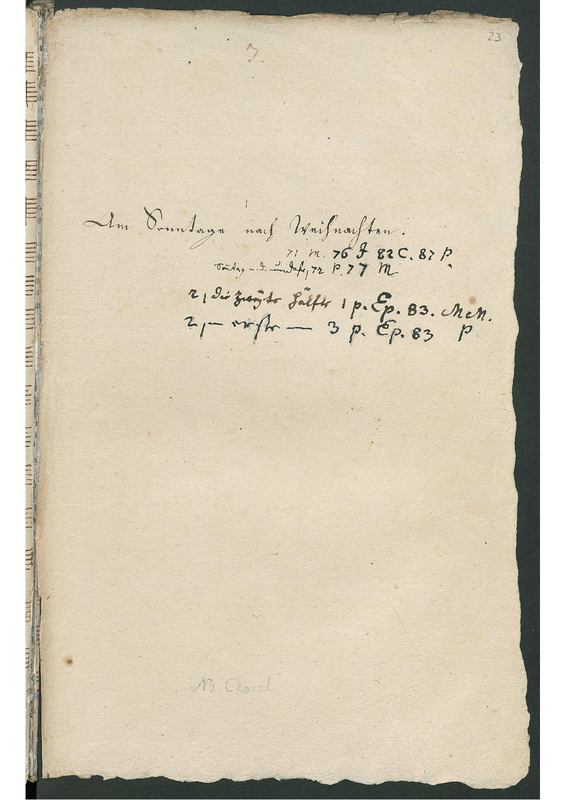 23
7.
Am Sonntage nach Weihnachten.
71 M. 76 J 82 C. 87 P.
Sontag n. d. 72 P. 77 M
2, die zweyte Hälfte 1 p. Ep. 83. M M.
2, — erste — 3 p. Ep. 83 P
NB Choral